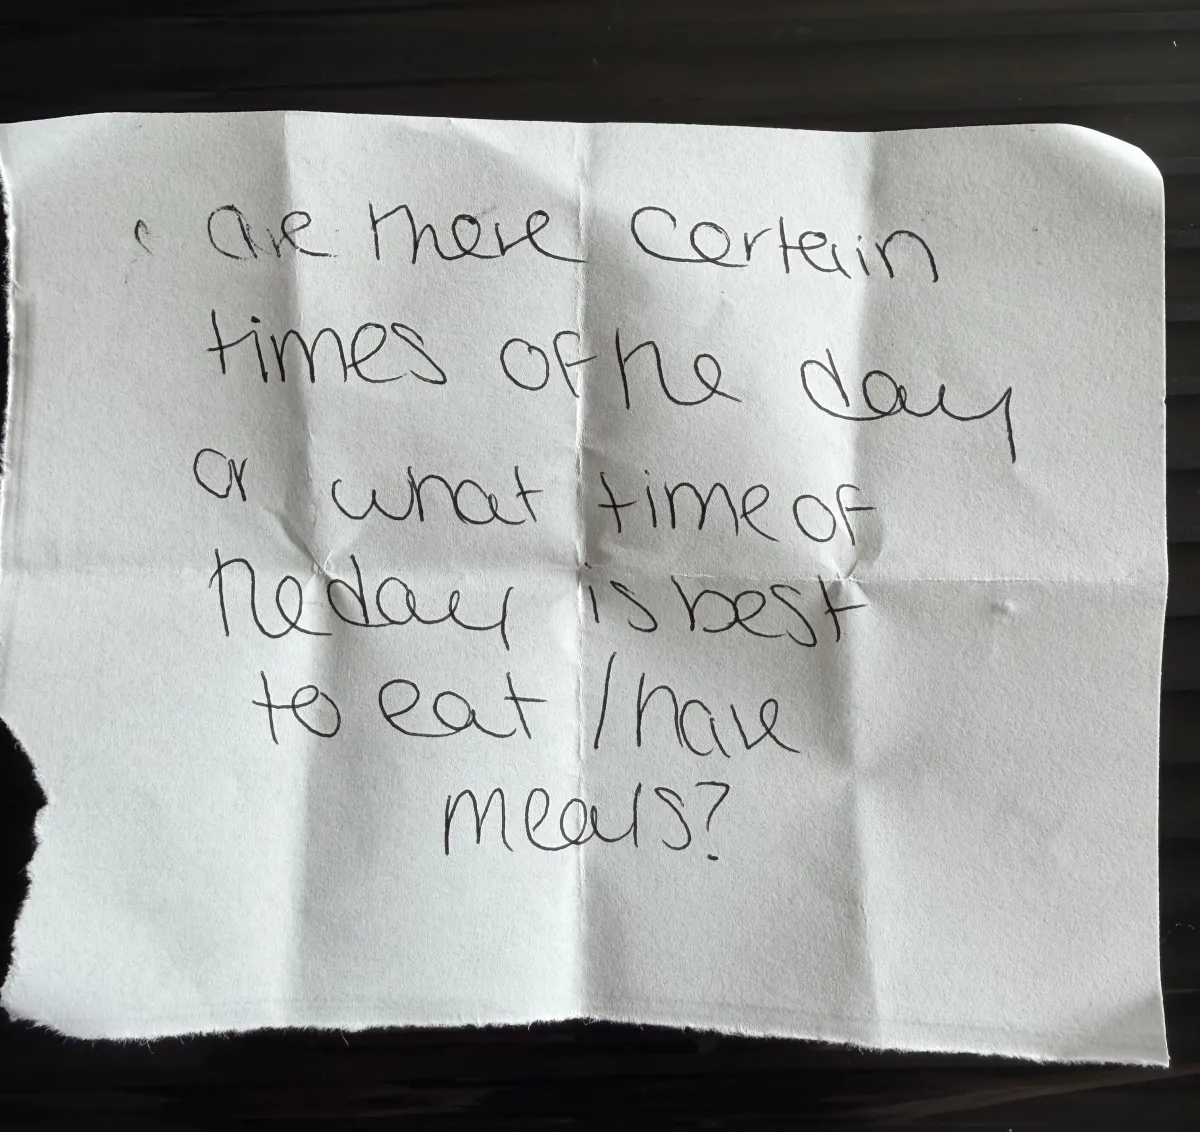 are there certain
times of the day
or what time of
the day is best
to eat / have
meals?